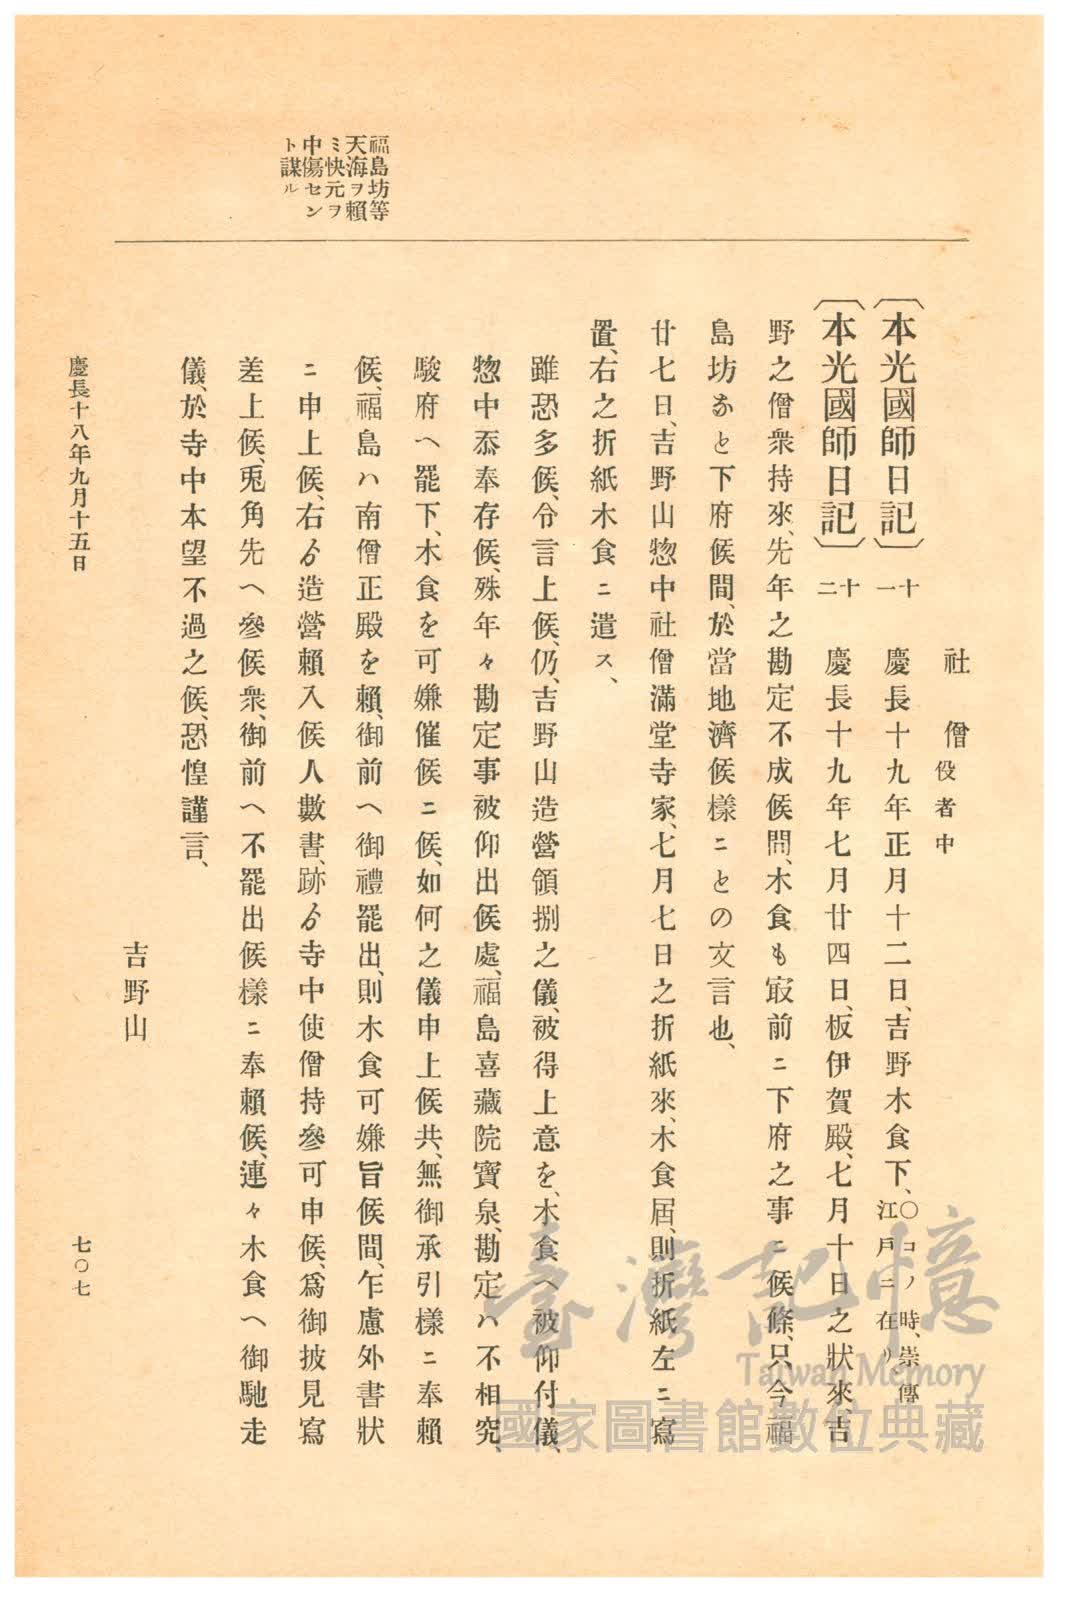 福島坊等
天海ヲ賴
ミ快元ヲ
中傷セン
ト謀ル
社僧役者中
〔本光國師日記〕十一　慶長十九年正月十二日、吉野木食下、○コノ時、崇傳江戸ニ在リ
〔本光國師日記〕十二　慶長十九年七月廿四日、板伊賀殿、七月十日之狀來、吉
野之僧衆持來、先年之勘定不成候間、木食も㝡前ニ下府之事ニ候條、只今福
島坊なと下府候間、於當地濟候樣ニとの文言也、
廿七日、吉野山惣中社僧滿堂寺家、七月七日之折紙來、木食屆、則折紙左ニ寫
置、右之折紙木食ニ遣ス、
雖恐多候、令言上候、仍吉野山造營領捌之儀、被得上意を、木食へ被仰付儀、
惣中忝奉存候、殊年々勘定事被仰出候處、福島喜藏院寶泉、勘定ハ不相究、
駿府へ罷下、木食を可嫌催候ニ候、如何之儀申上候共、無御承引樣ニ奉賴
候、福島ハ南僧正殿を賴、御前へ御禮罷出、則木食可嫌旨候間、乍慮外書狀
ニ申上候、右ゟ造營賴入候人數書、跡ゟ寺中使僧持參可申候、爲御披見寫
差上候、兎角先へ參候衆、御前へ不罷出候樣ニ奉賴候、連々木食へ御馳走
儀、於寺中本望不過之候、恐惶謹言、
吉野山
慶長十八年九月十五日
七〇七
臺灣記憶
Taiwan Memory
國家圖書館數位典藏